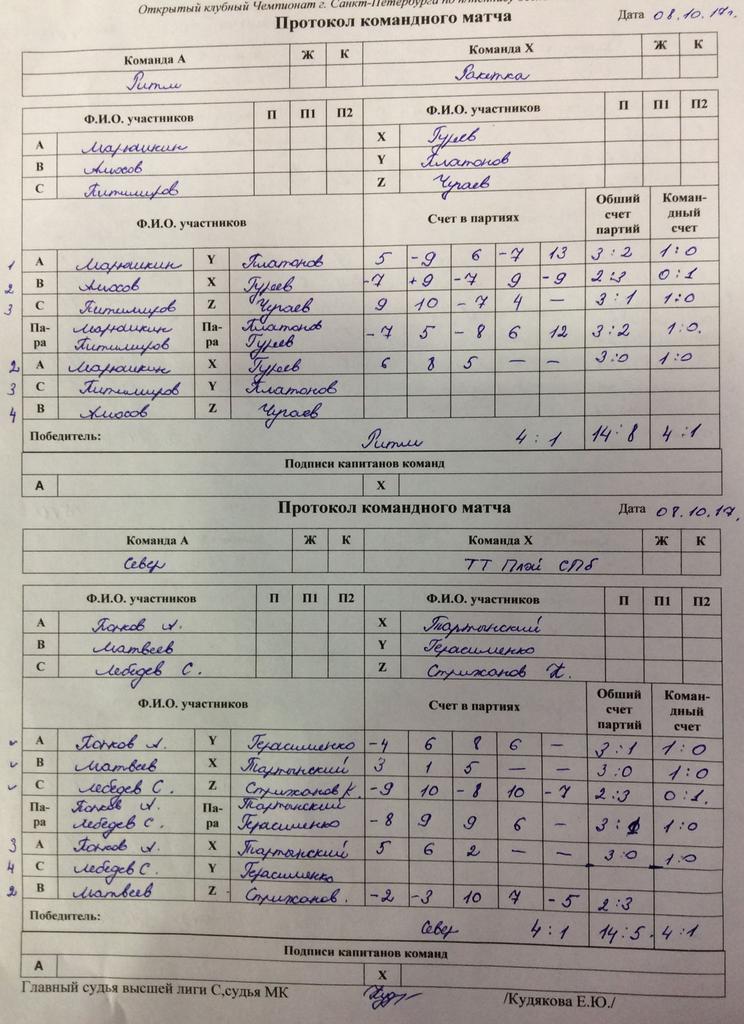 Открытый клубный Чемпионат г. Санкт-Петербурга по
Протокол командного матча Дата 08.10.17г.
Команда А Ж К Команда Х Ж К
Ритм Ракетка
Ф.И.О. участников П П1 П2 Ф.И.О. участников П П1 П2
А Марюшкин X Гуреев
В Амосов Y Платонов
С Питимиров Z Чугаев
Ф.И.О. участников Счет в партиях Общий счет партий Коман-дный счет
1 А Марюшкин Y Платонов 5 -9 6 -7 13 3:2 1:0
2 В Амосов X Гуреев -7 +9 -7 9 -9 2:3 0:1
3 С Питимиров Z Чугаев 9 10 -7 4 — 3:1 1:0
Па-ра Марюшкин Питимиров Па-ра Платонов Гуреев -7 5 -8 6 12 3:2 1:0.
2 А Марюшкин X Гуреев 6 8 5 — — 3:0 1:0
3 С Питимиров Y Платонов
4 В Амосов Z Чугаев
Победитель: Ритм 4:1 14:8 4:1
Подписи капитанов команд
А Х
Протокол командного матча Дата 08.10.17.
Команда А Ж К Команда Х Ж К
Север ТТ Плэй СПб
Ф.И.О. участников П П1 П2 Ф.И.О. участников П П1 П2
А Попков А. X Тартынский
В Матвеев Y Герасименко
С Лебедев С. Z Стрижанов К.
Ф.И.О. участников Счет в партиях Общий счет партий Коман-дный счет
А Попков А. Y Герасименко -4 6 8 6 — 3:1 1:0
В Матвеев X Тартынский 3 1 5 — — 3:0 1:0
С Лебедев С. Z Стрижанов К. -9 10 -8 10 -7 2:3 0:1.
Па-ра Попков А. Лебедев С. Па-ра Тартынский Герасименко -8 9 9 6 — 3:1 1:0
3 А Попков А. X Тартынский 5 6 2 — — 3:0 1:0
4 С Лебедев С. Y Герасименко
2 В Матвеев Z Стрижанов. -2 -3 10 7 -5 2:3
Победитель: Север 4:1 14:5. 4:1
Подписи капитанов команд
А Х
Главный судья высшей лиги С,судья МК /Кудякова Е.Ю./